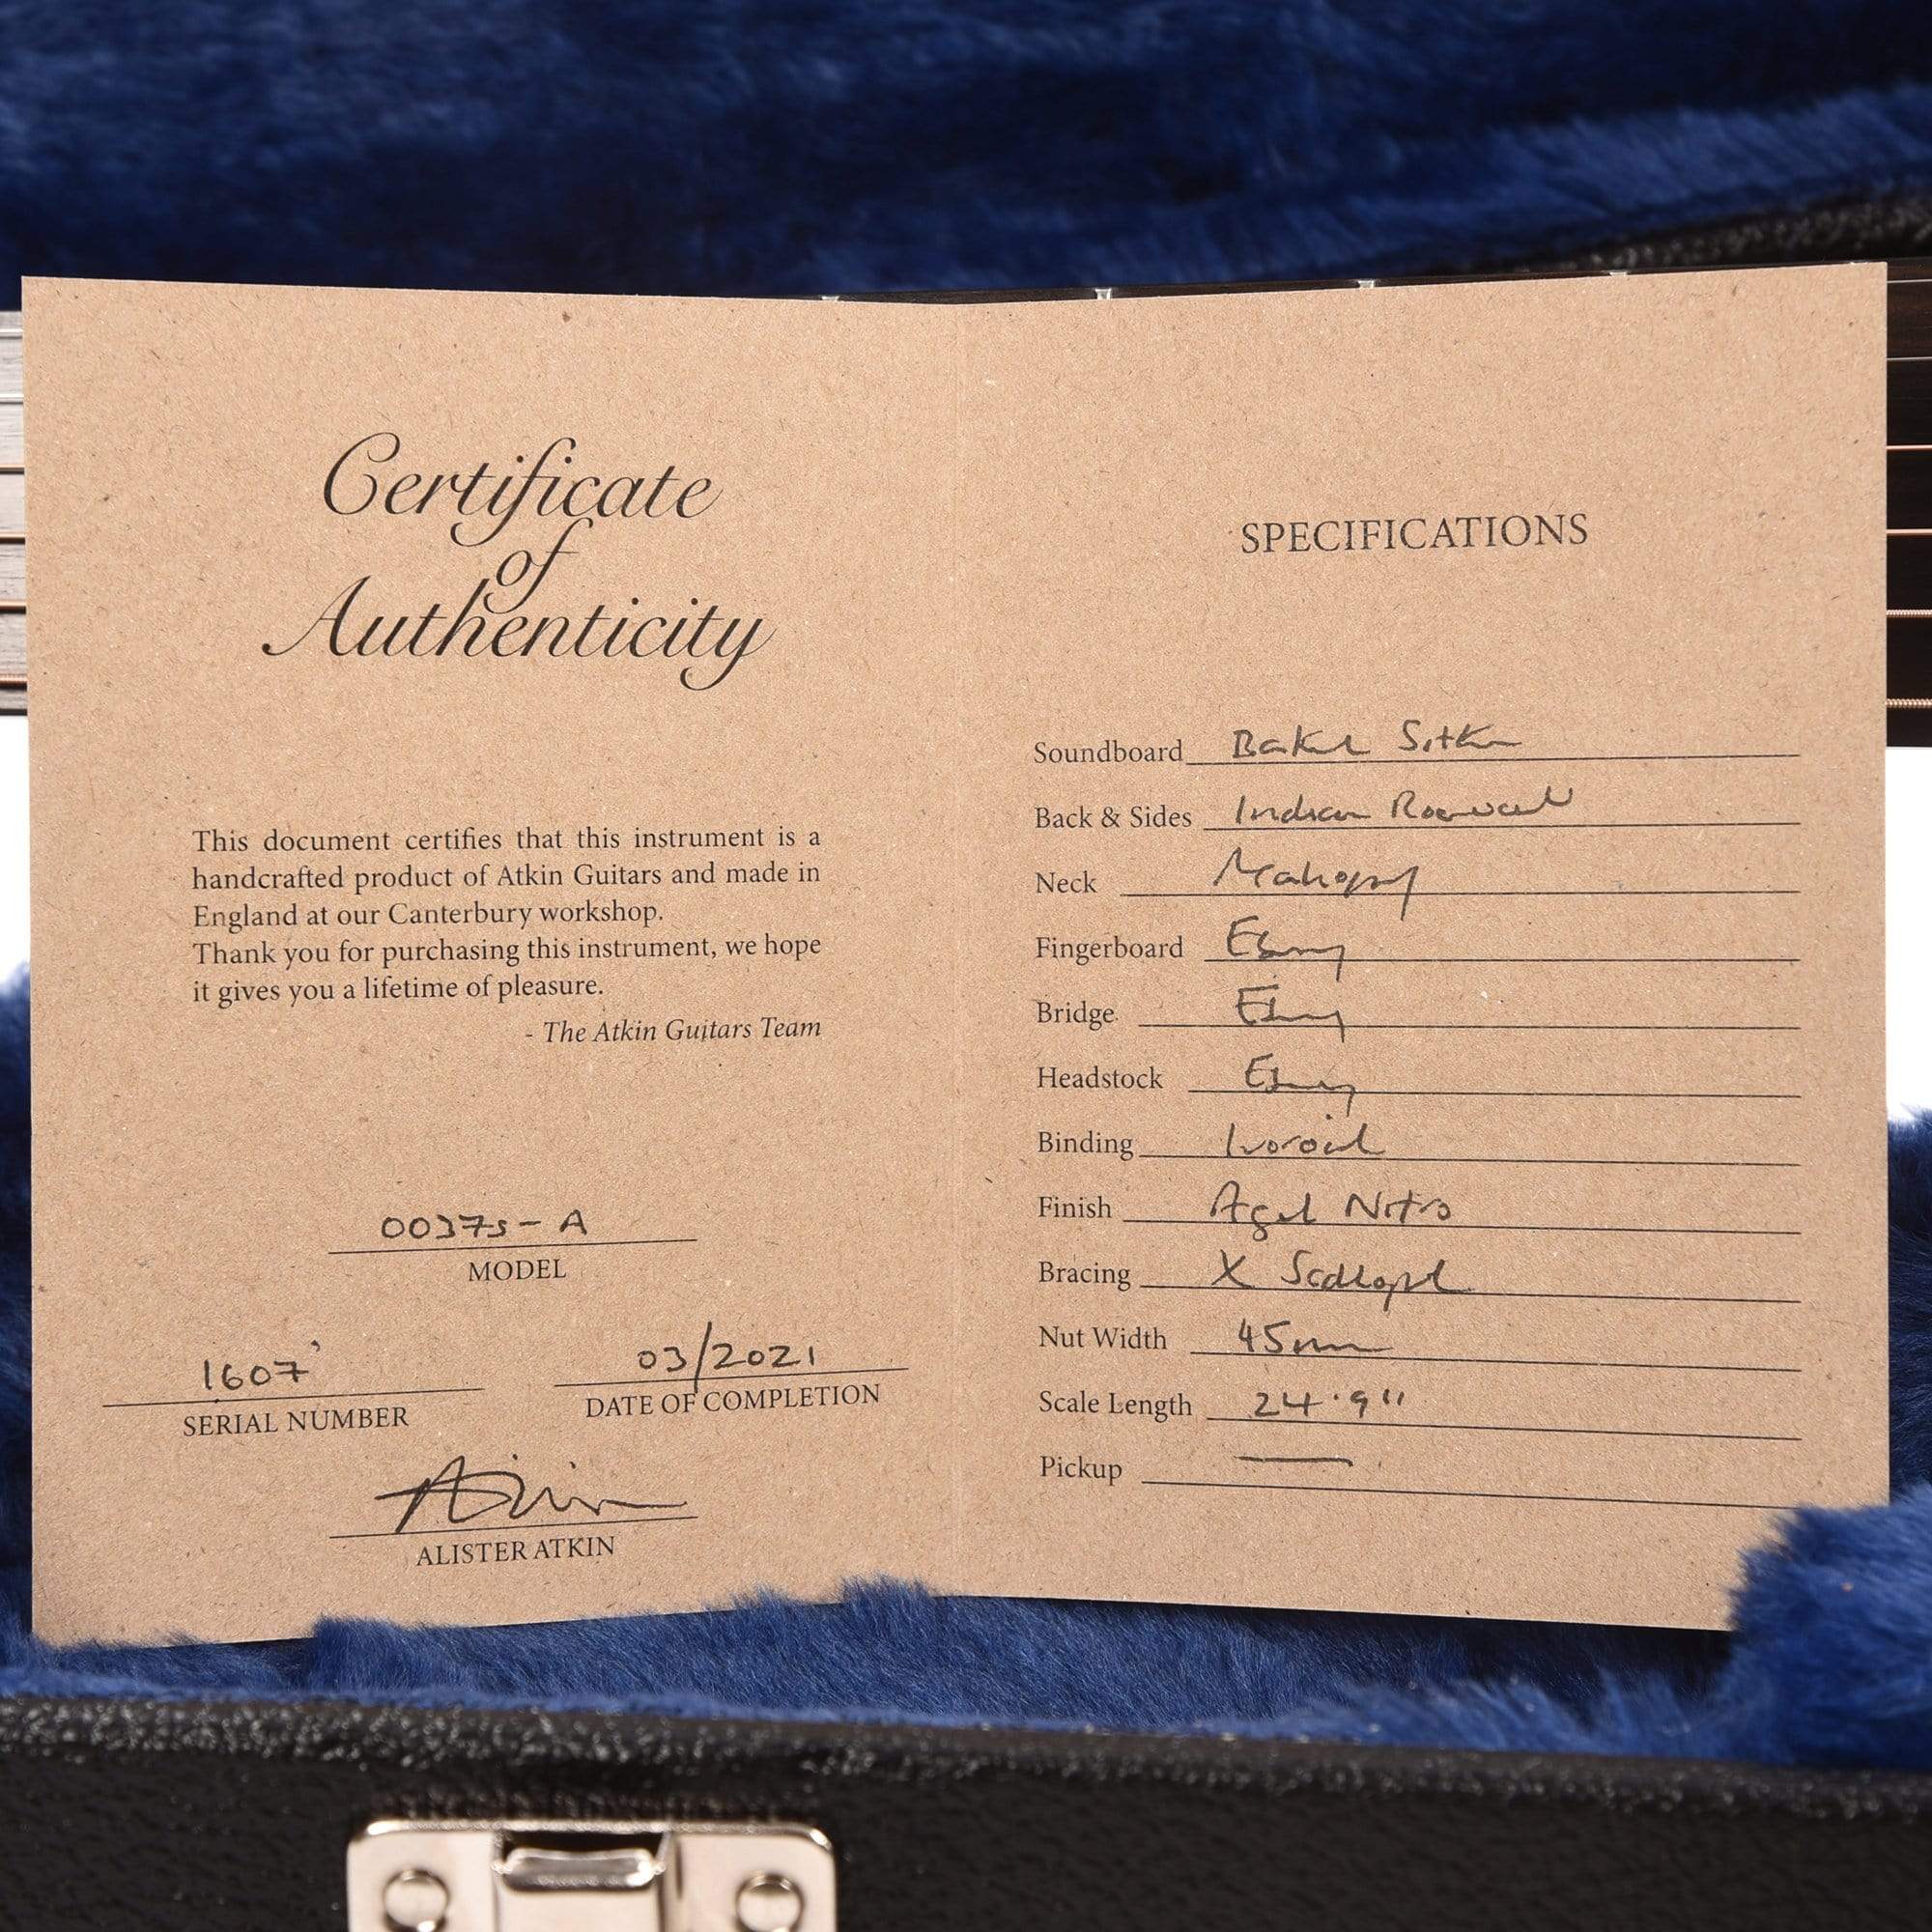 Certificate
of
Authenticity
This document certifies that this instrument is a
handcrafted product of Atkin Guitars and made in
England at our Canterbury workshop.
Thank you for purchasing this instrument, we hope
it gives you a lifetime of pleasure.
- The Atkin Guitars Team
0037s - A
MODEL
1607
SERIAL NUMBER
03/2021
DATE OF COMPLETION
Atkin
ALISTER ATKIN
SPECIFICATIONS
Soundboard Baked Sitka
Back & Sides Indian Rosewood
Neck Mahogany
Fingerboard Ebony
Bridge Ebony
Headstock Ebony
Binding Ivoroid
Finish Aged Nitro
Bracing X Scalloped
Nut Width 45mm
Scale Length 24.9"
Pickup —